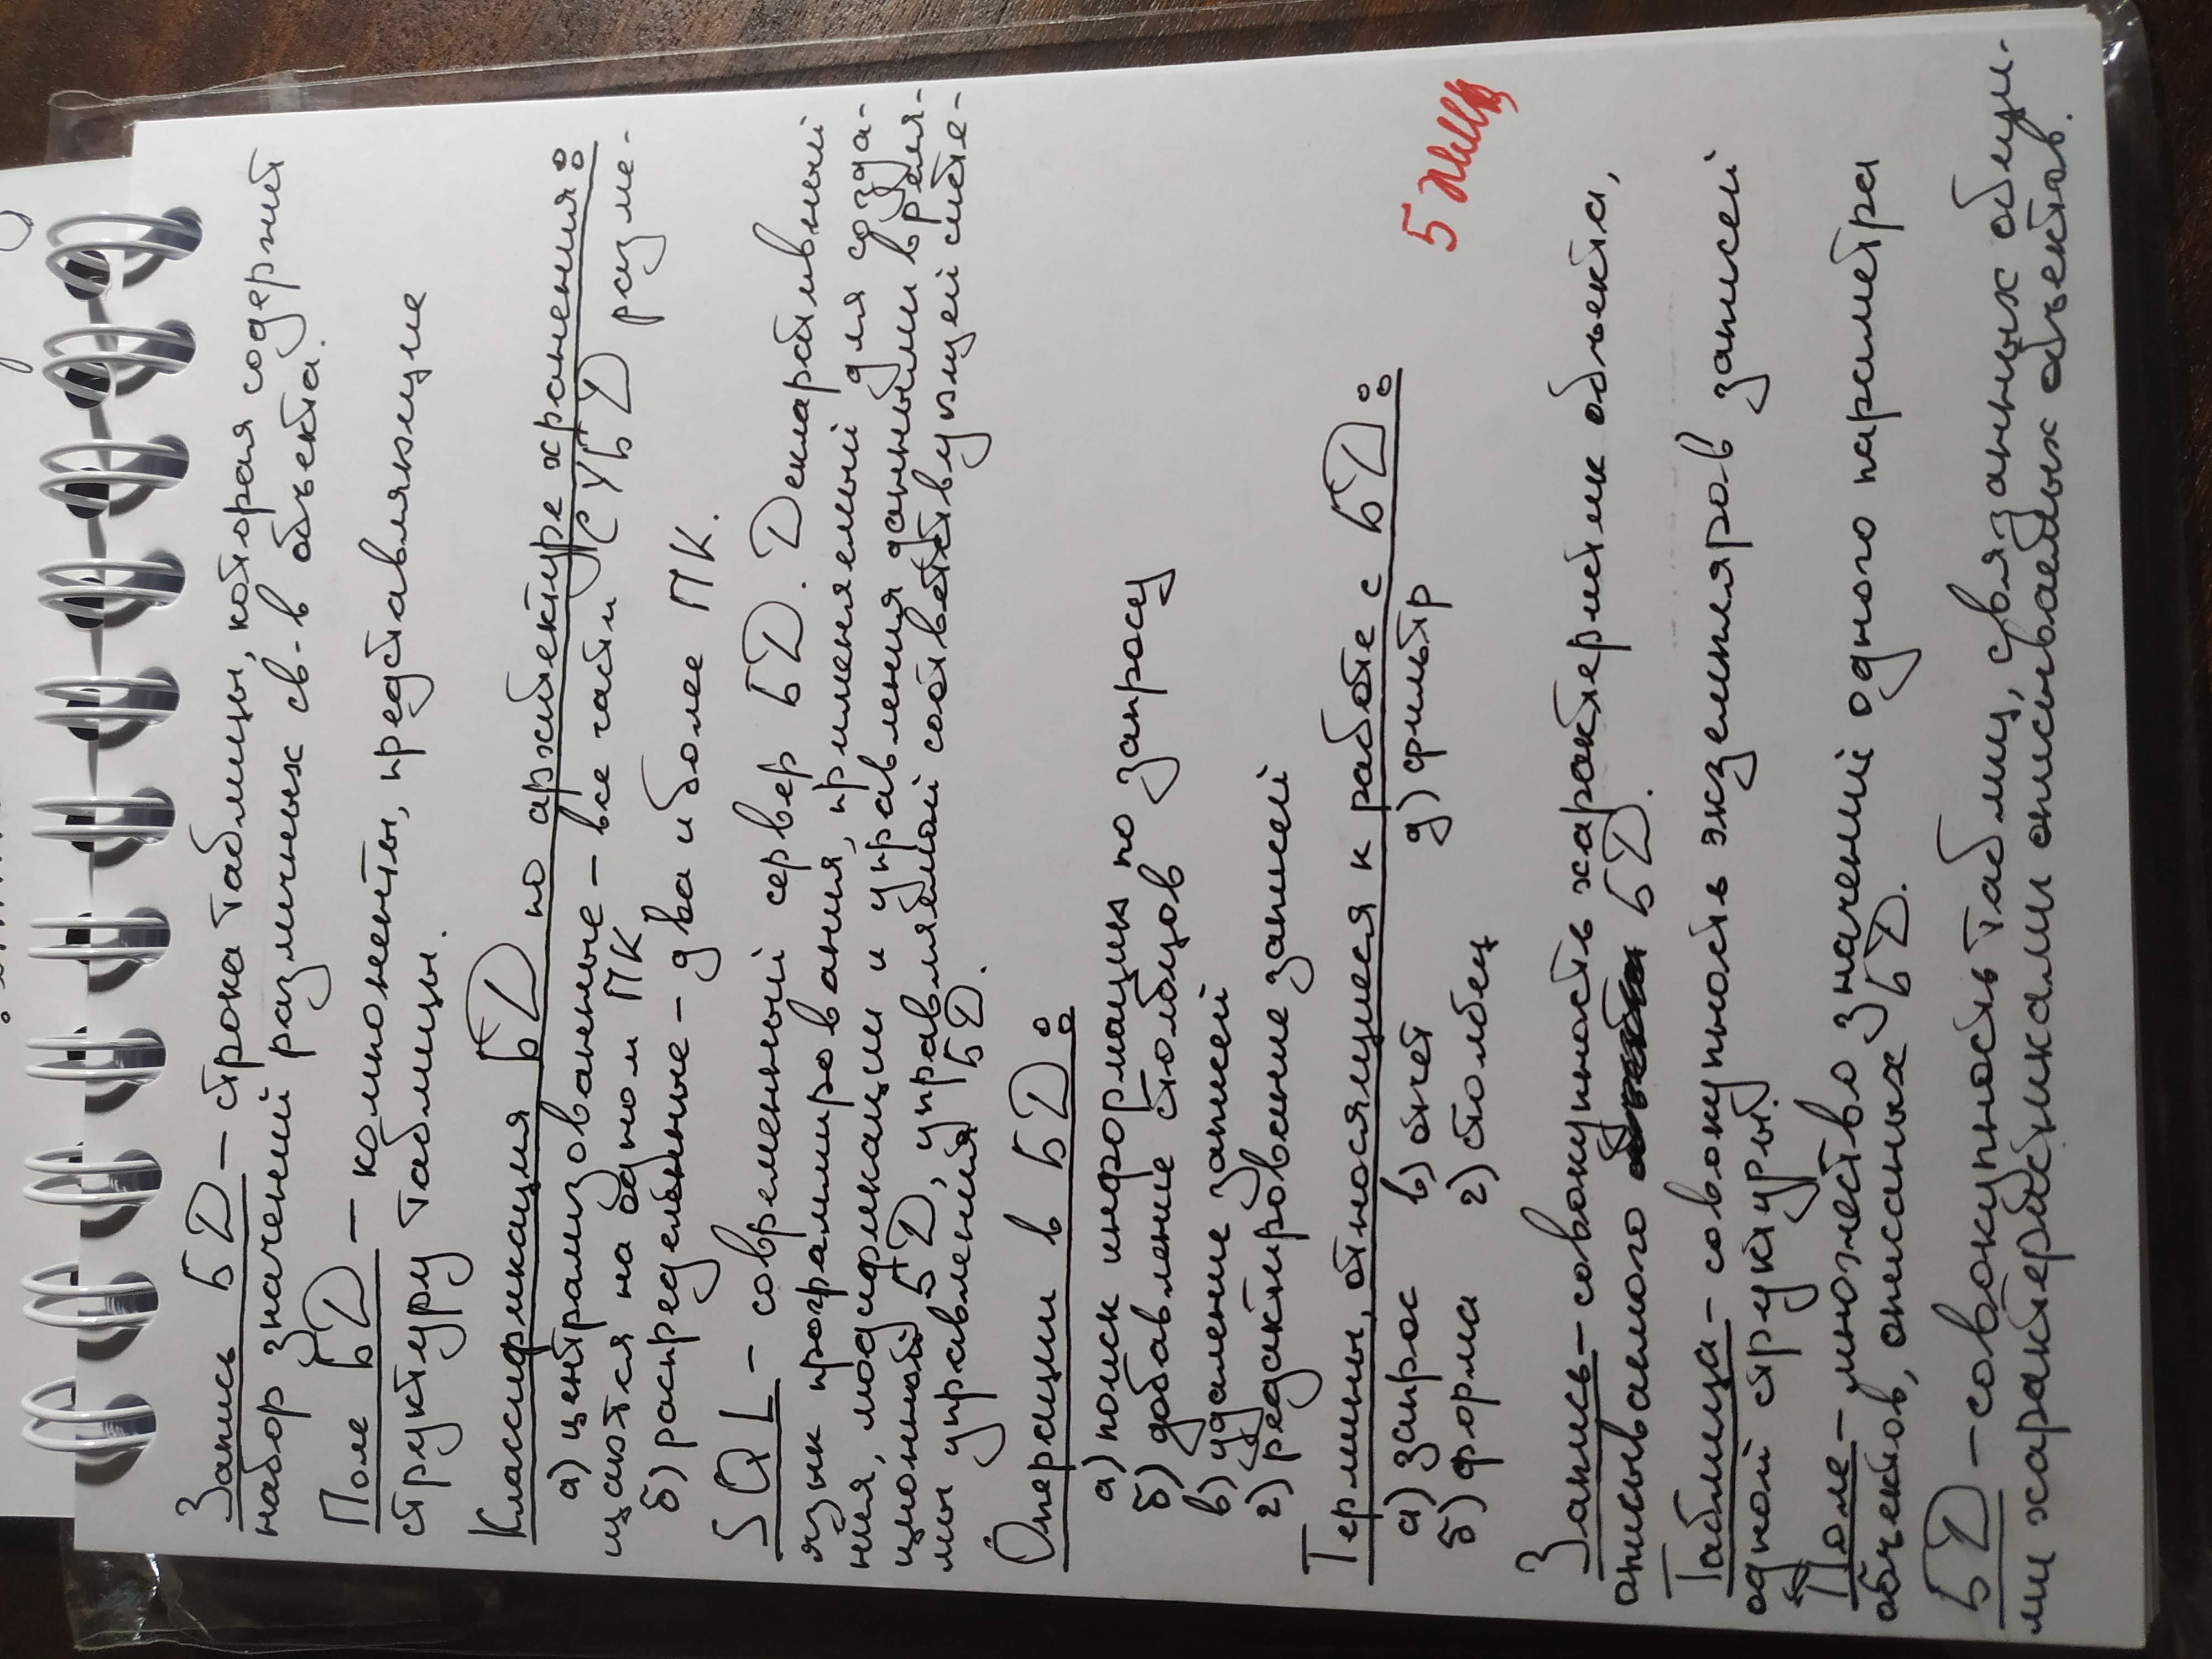 Запись БД – строка таблицы, которая содержит
набор значений различных св-в объекта.
Поле БД – компоненты, представляющие
структуру таблицы.
Классификация БД по архитектуре хранения:
а) централизованные – все части СУБД разме-
щаются на одном ПК.
б) распределённые – два и более ПК.
SQL – современный сервер БД. Декларативный
язык программирования, применяемый для созда-
ния, модификации и управления данными в реля-
ционной БД, управляемой соответствующей систе-
мы управления БД.
Операции в БД:
а) поиск информации по запросу
б) добавление столбцов
в) удаление записей
г) редактирование записей
Термины, относящиеся к работе с БД:
а) запрос в) отчет д) фильтр
б) форма г) столбец
5
Запись – совокупность характеристик объекта,
описываемого БД.
Таблица – совокупность экземпляров записей
одной структуры.
Поле – множество значений одного параметра
объектов, описаных БД.
БД – совокупность таблиц, связанных общи-
ми характеристиками описываемых объектов.